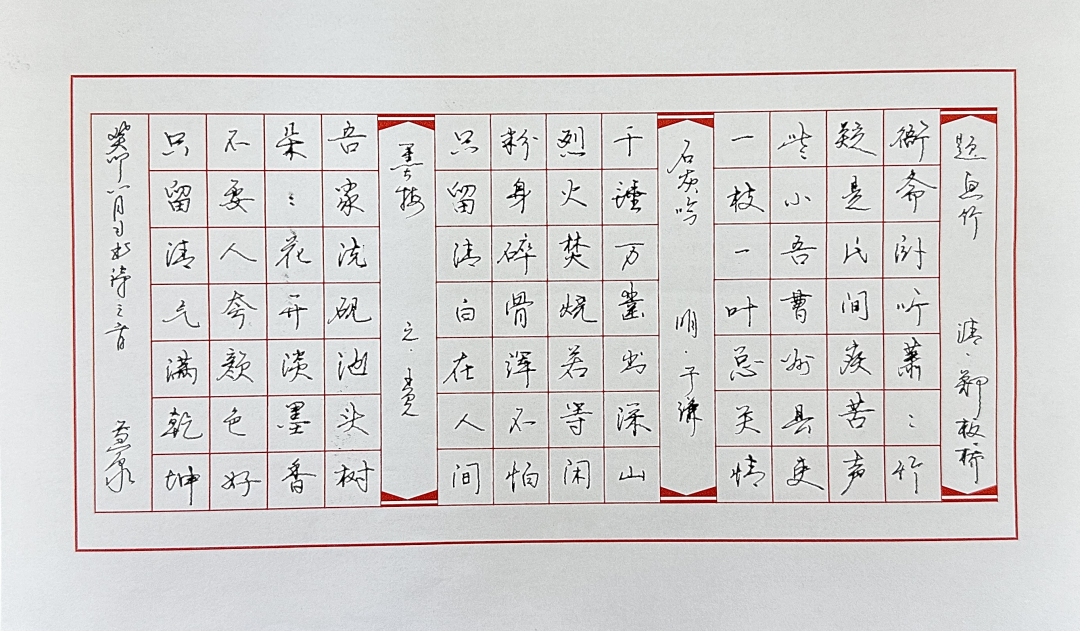 题画竹 清·郑板桥
衙斋卧听萧〻竹
疑是民间疾苦声
些小吾曹州县吏
一枝一叶总关情
石灰吟 明·于谦
千锤万凿出深山
烈火焚烧若等闲
粉身碎骨浑不怕
只留清白在人间
墨梅 元·王冕
吾家洗砚池头树
朵〻花开淡墨香
不要人夸颜色好
只留清气满乾坤
癸卯八月 诗三首 泉